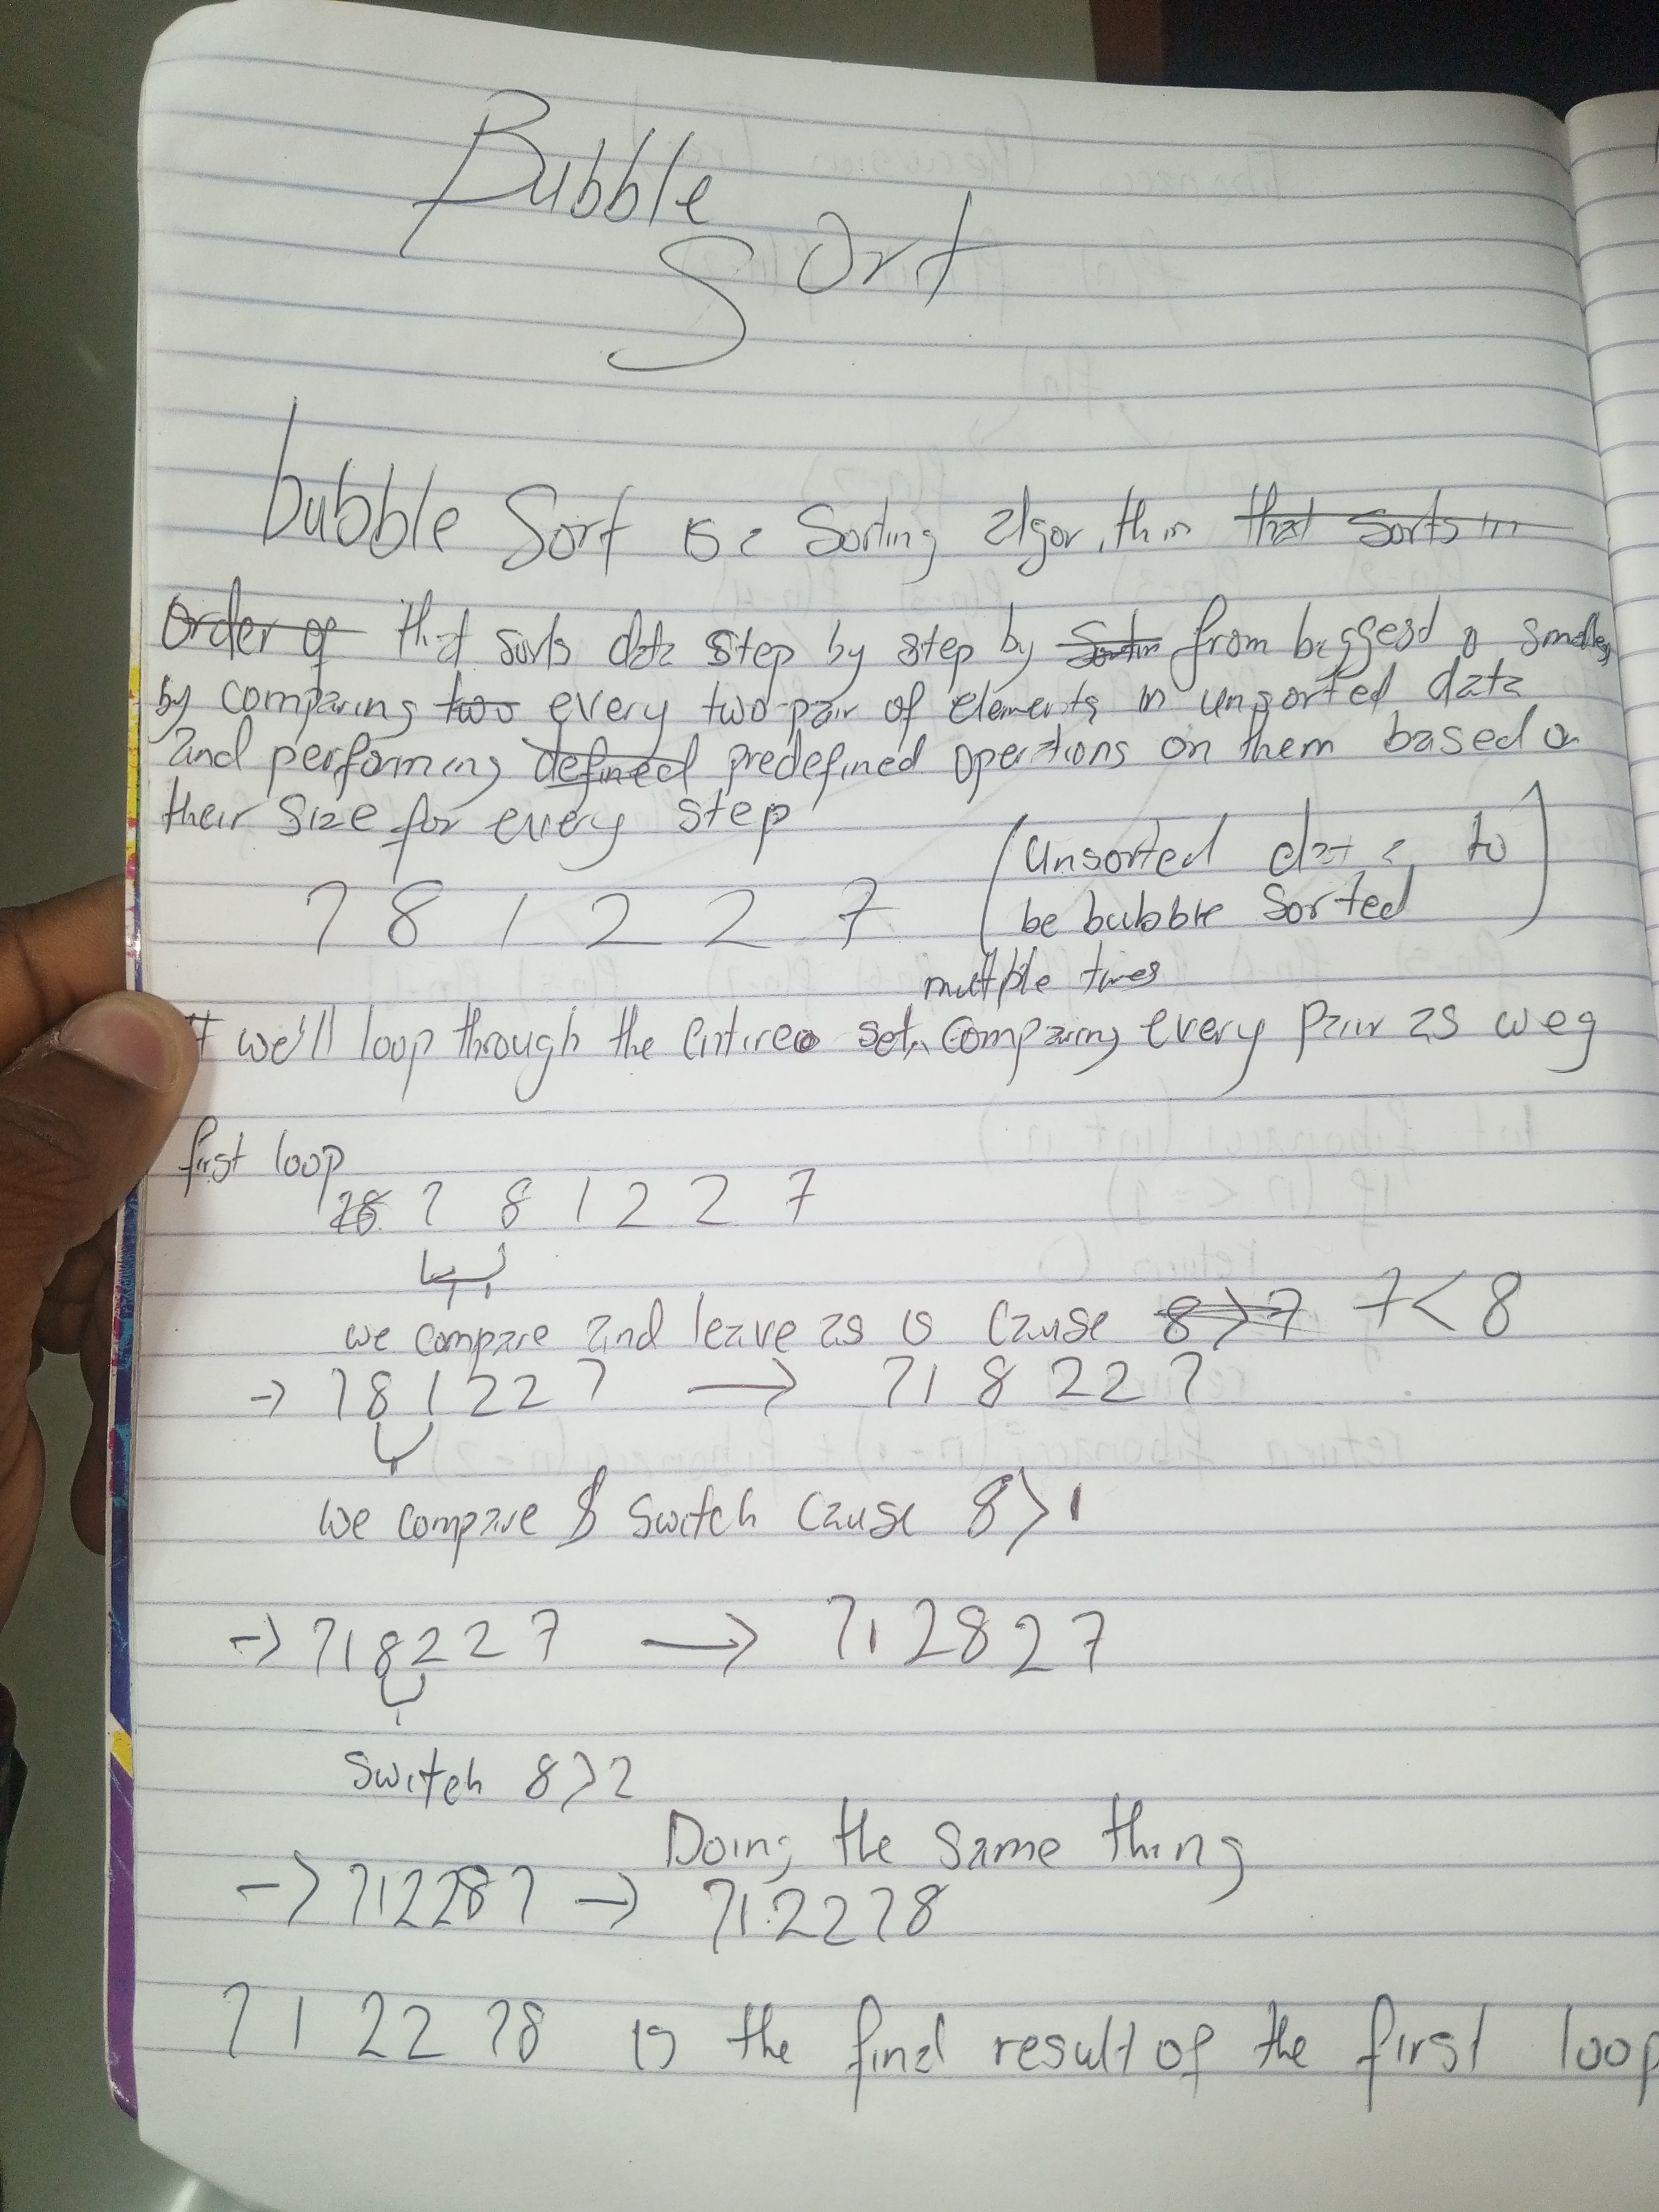 Bubble
Sort
bubble Sort is a Sorting algorithm that sorts in
Order of that sorts data step by step by from biggest o smallest
by comparing two every two pair of elements in unsorted data
and performing defined predefined operations on them based on
their size for every step
7 8 1 2 2 7
(unsorted data to
be bubble sorted)
multiple times
we'll loop through the entire set, comparing every pair as we g
first loop
78 7 8 1 2 2 7
we compare and leave as is cause 8>7 7<8
-> 7 8 1 2 2 7 -> 7 1 8 2 2 7
we compare & switch cause 8>1
-> 7 1 8 2 2 7 -> 7 1 2 8 2 7
switch 8>2
Doing the same thing
-> 7 1 2 2 8 7 -> 7 1 2 2 7 8
7 1 2 2 7 8 is the final result of the first loop